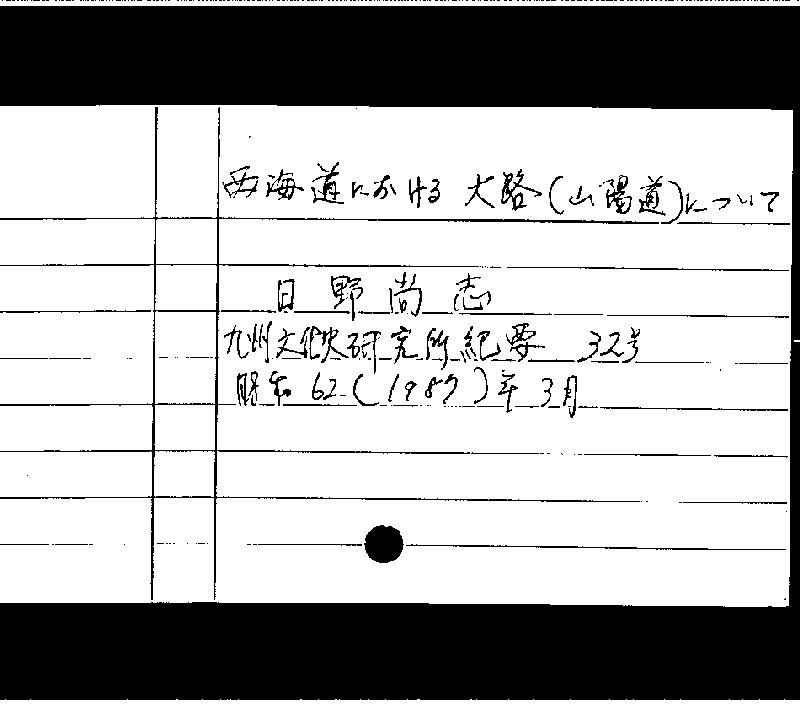 西海道における大路(山陽道)について
日野尚志
九州文化史研究所紀要 32号
昭和62(1987)年3月